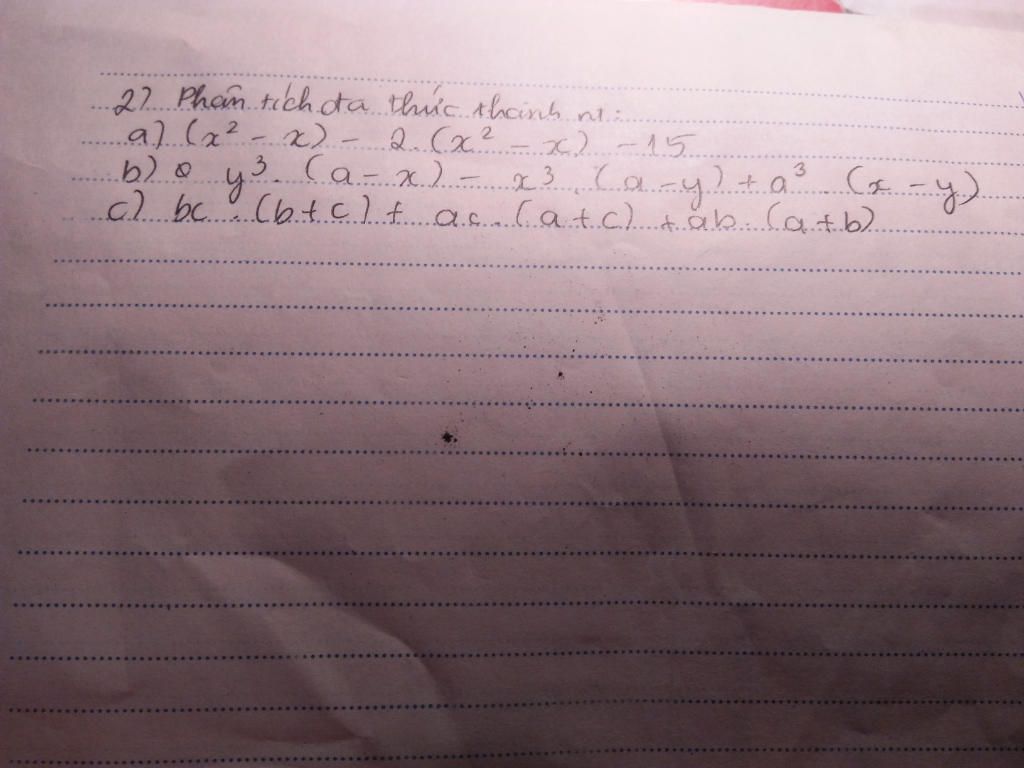 2) Phân tích đa thức thành nt:
a) (x² - x) - 2.(x² - x) - 15
b) y³.(a - x) - x³.(a - y) + a³.(x - y)
c) bc.(b + c) + ac.(a + c) + ab.(a + b)